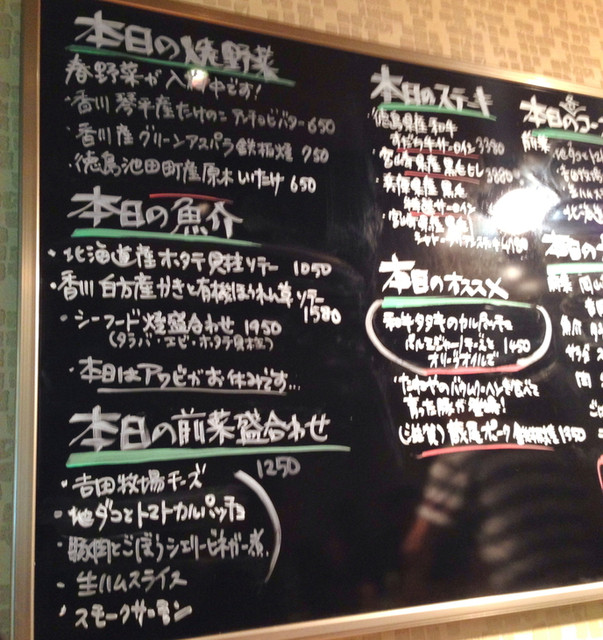 本日の焼野菜
春野菜が入荷中です!
・香川 琴平産たけのこ アンチョビバター 650
・香川産 グリーンアスパラ鉄板焼 750
・徳島池田町産原木しいたけ 650
本日の魚介
・北海道産ホタテ貝柱ソテー 1050
・香川 白方産かきと有機ほうれん草ソテー 1580
・シーフード焼盛合わせ 1950
(タラバ・エビ・ホタテ貝柱)
・本日はアワビがお休みです...
本日の前菜盛合わせ
1250
・吉田牧場チーズ
・地ダコとトマトカルパッチョ
・豚肉とごぼうシェリービネガー煮
・生ハムスライス
・スモークサーモン
本日のステーキ
徳島県産 和牛
すだち牛サーロイン 3380
・宮崎県産 黒毛ヒレ 3880
・兵庫県産 黒毛
特選サーロイン
・宮崎県産
シャトーブリアン
本日のオススメ
和牛タタキのカルパッチョ
パルミジャーノチーズと 1450
オリーブオイルで
育った豚が登場!
(滋賀) 蔵尾ポーク 鉄板焼 1350
本日のコー
前菜
地ダコと
吉田牧場
生ハムス
北海道
本日の
前菜
魚介
サラダ